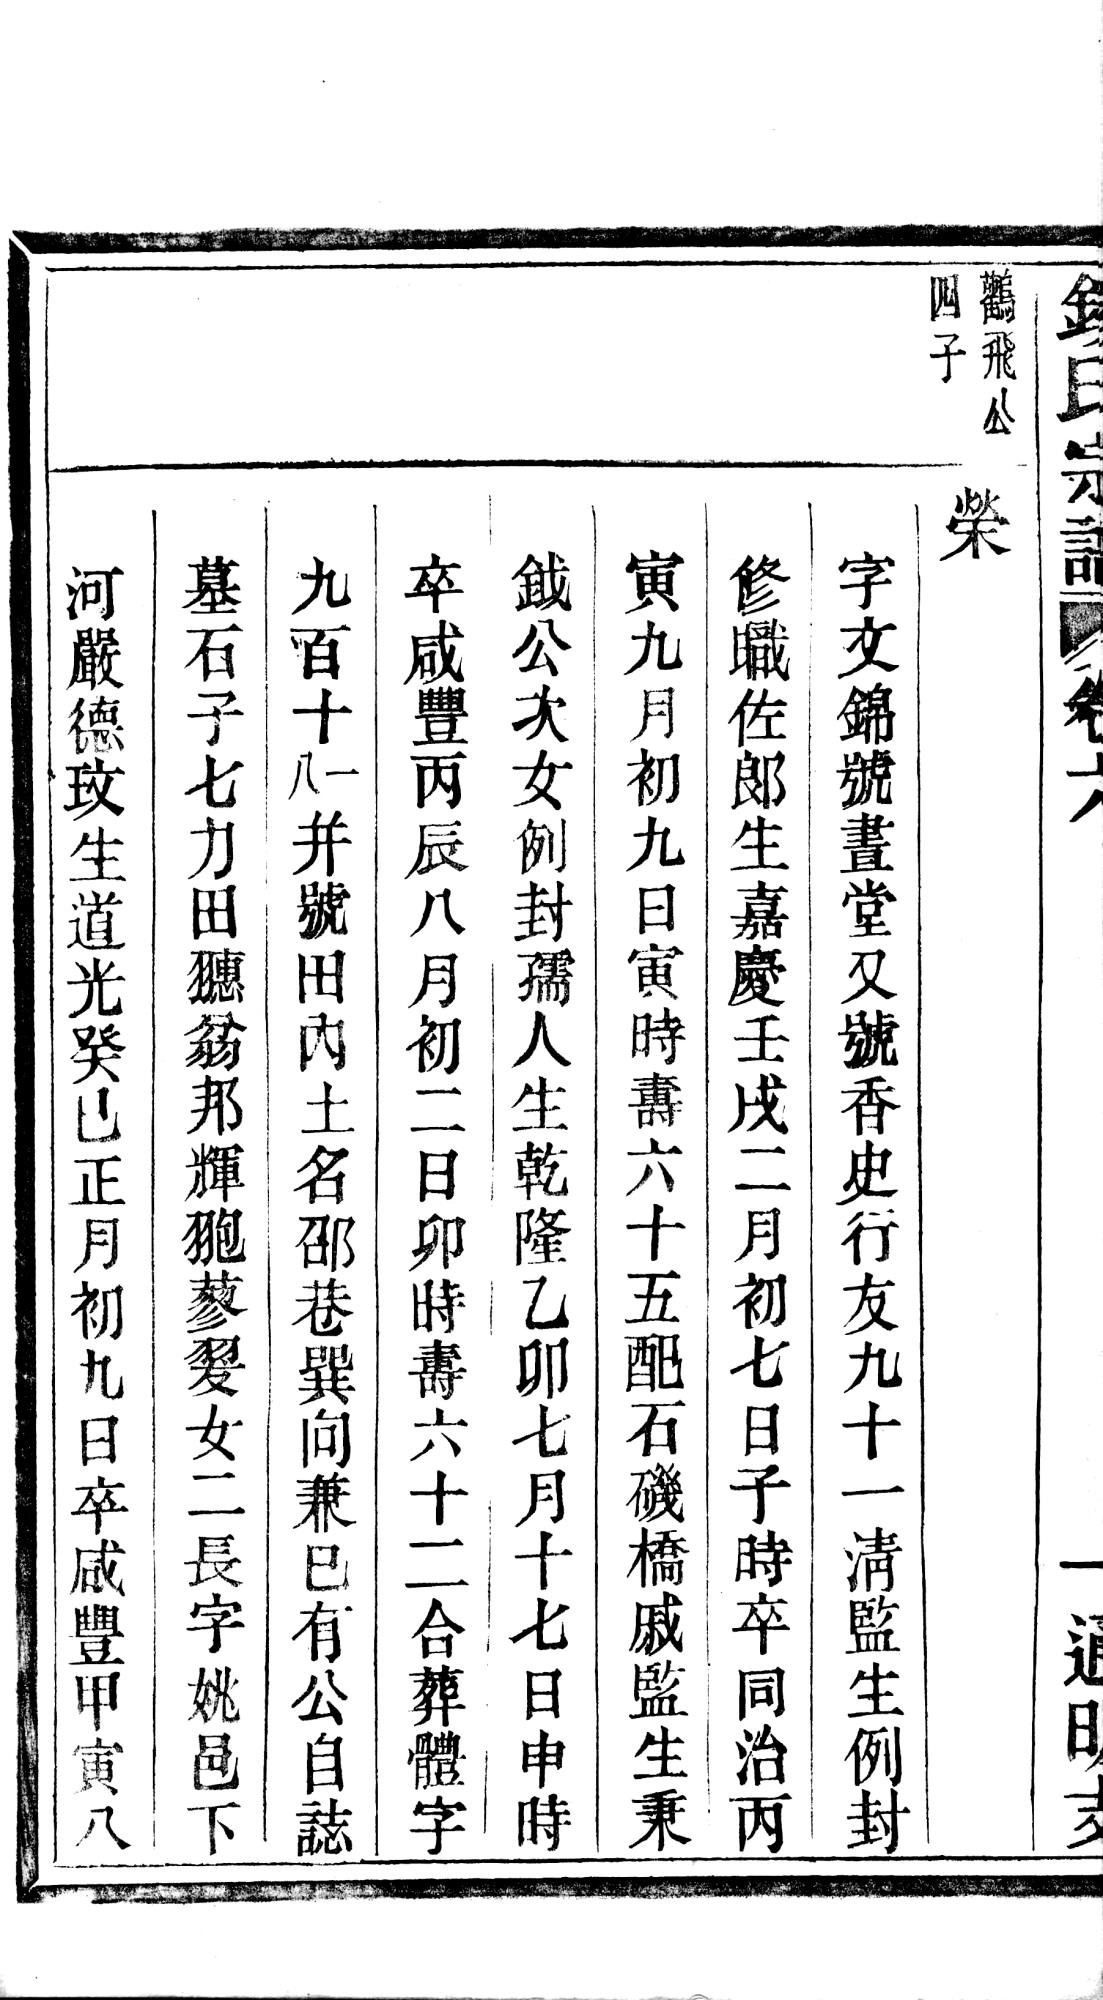 氏宗譜 卷六 一 通明支
鸛飛公
四子
榮
字文錦號晝堂又號香史行友九十一清監生例封
修職佐郎生嘉慶壬戌二月初七日子時卒同治丙
寅九月初九日寅時壽六十五配石磯橋戚監生秉
鉞公次女例封孺人生乾隆乙卯七月十七日申時
卒咸豐丙辰八月初二日卯時壽六十二合葬體字
九百十一八并號田內土名邵巷巽向兼巳有公自誌
墓石子七力田翐翁邦輝翑蔘翜女二長字姚邑下
河嚴德玟生道光癸巳正月初九日卒咸豐甲寅八